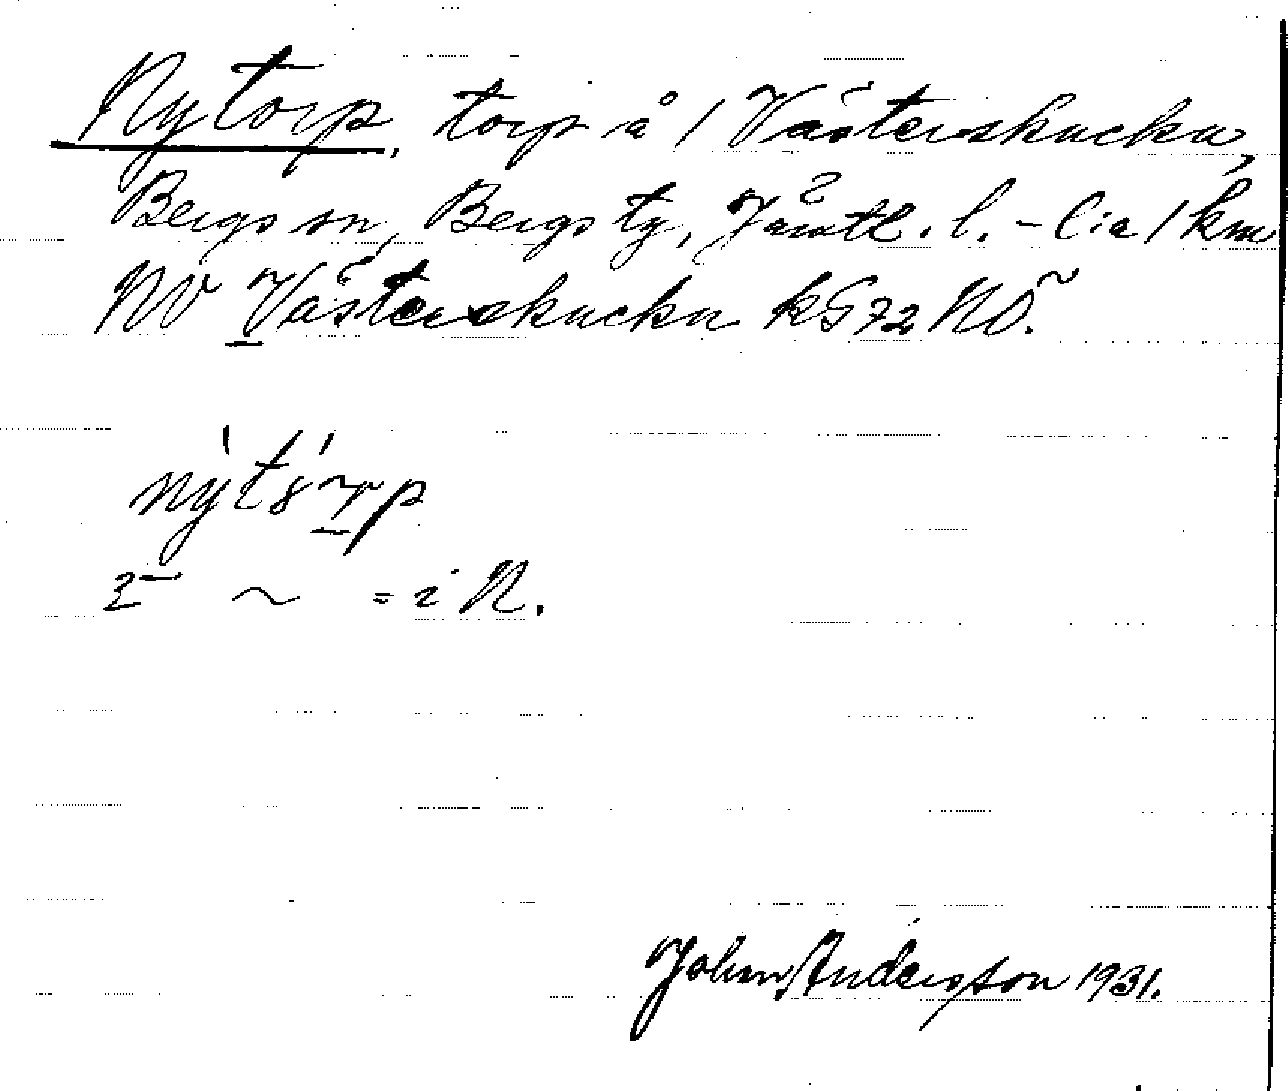 Nytorp, torp å 1 Västerskucku,
Bergs sn, Bergs tg, Jämtl. l. - C:a 1 km
NV Västerskucku kG72 NO.
i N.
John Andersson 1931.